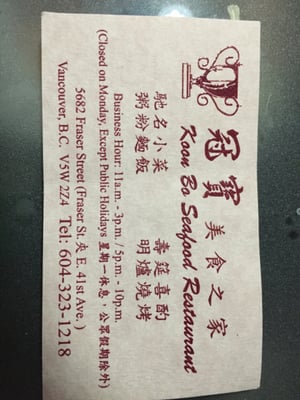 冠寶 美食之家
Koon Bo Seafood Restaurant
馳名小菜 壽筵喜酌
粥粉麵飯 明爐燒烤
Business Hour: 11a.m. - 3p.m. / 5p.m. - 10p.m.
(Closed on Monday, Except Public Holidays 星期一休息，公眾假期除外)
5682 Fraser Street (Fraser St. 夾 E. 41st Ave.)
Vancouver, B.C. V5W 2Z4 Tel: 604-323-1218